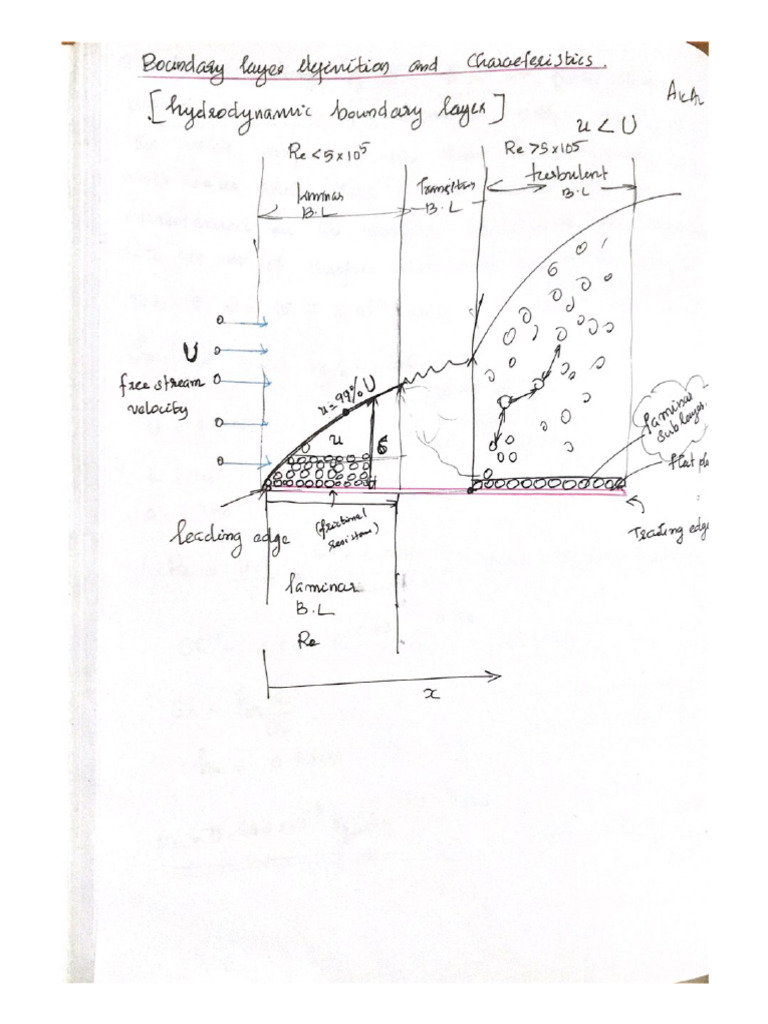 Boundary layer definition and Characteristics.
[hydrodynamic boundary layer]
u < U
Re < 5 x 10⁵
Re > 5 x 10⁵
Laminar
B.L
Transition
B.L
turbulent
B.L
U
free stream
velocity
u = 99% U
u
δ
laminar
sublayer
flat
leading edge
(frictional
resistance)
edge
laminar
B.L
Re
x